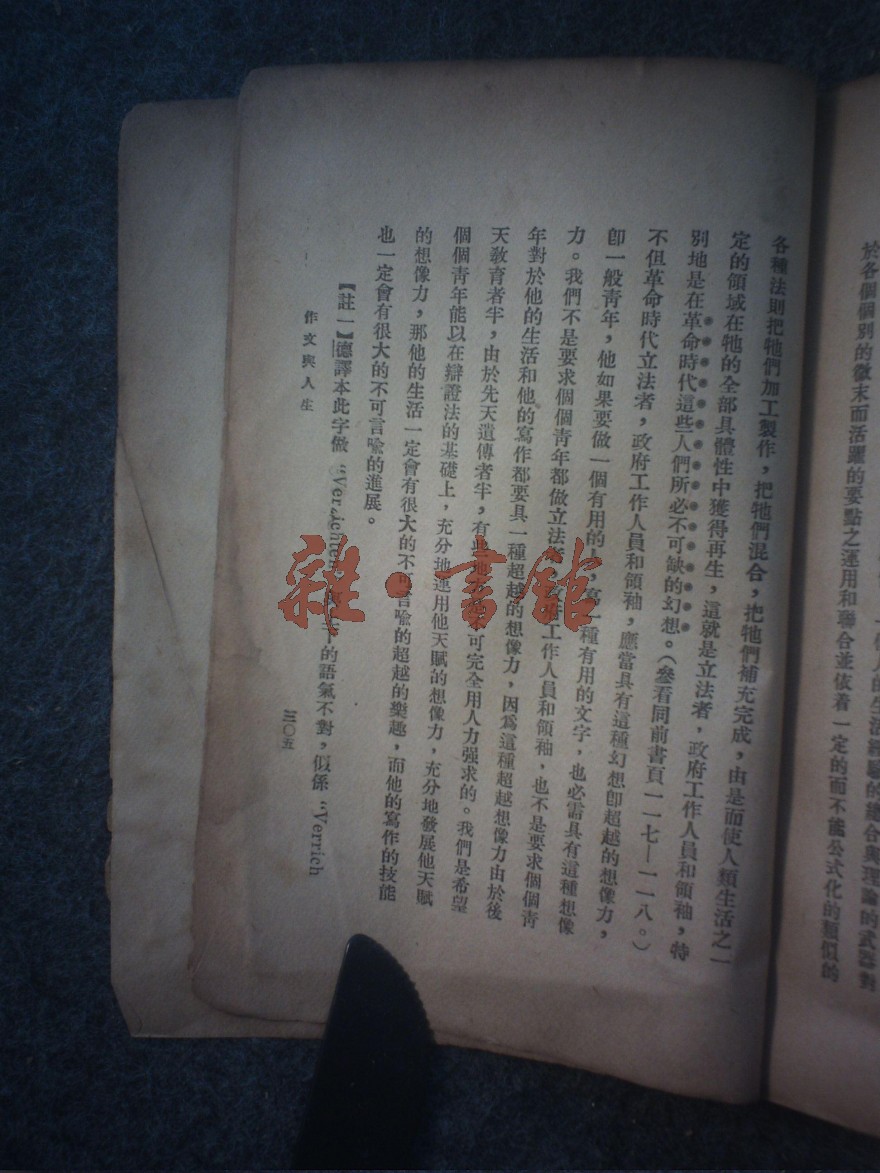 於各個個別的徵末而活躍的要點之運用和聯合並依着一定的而不能公式化的類似的
各種法則把牠們加工製作，把牠們混合，把牠們補充完成，由是而使人類生活之一
定的領域在牠的全部具體性中獲得再生，這就是立法者，政府工作人員和領袖，特
別地是在革命時代這些人們所必不可缺的幻想。（參看同前書頁一一七—一一八。）
不但革命時代立法者，政府工作人員和領袖，應當具有這種幻想卽超越的想像力，
卽一般靑年，他如果要做一個有用的人，寫一種有用的文字，也必需具有這種想像
力。我們不是要求個個靑年都做立法者政府工作人員和領袖，也不是要求個個靑
年對於他的生活和他的寫作都要具一種超越的想像力，因爲這種超越想像力由於後
天敎育者半，由於先天遺傳者半，有些地不可完全用人力强求的。我們是希望
個個靑年能以在辯證法的基礎上，充分地運用他天賦的想像力，充分地發展他天賦
的想像力，那他的生活一定會有很大的不可言喩的超越的樂趣，而他的寫作的技能
也一定會有很大的不可言喩的進展。
【註一】德譯本此字做 的語氣不對，似係 "Verrich
作文與人生
三〇五
雜·書館